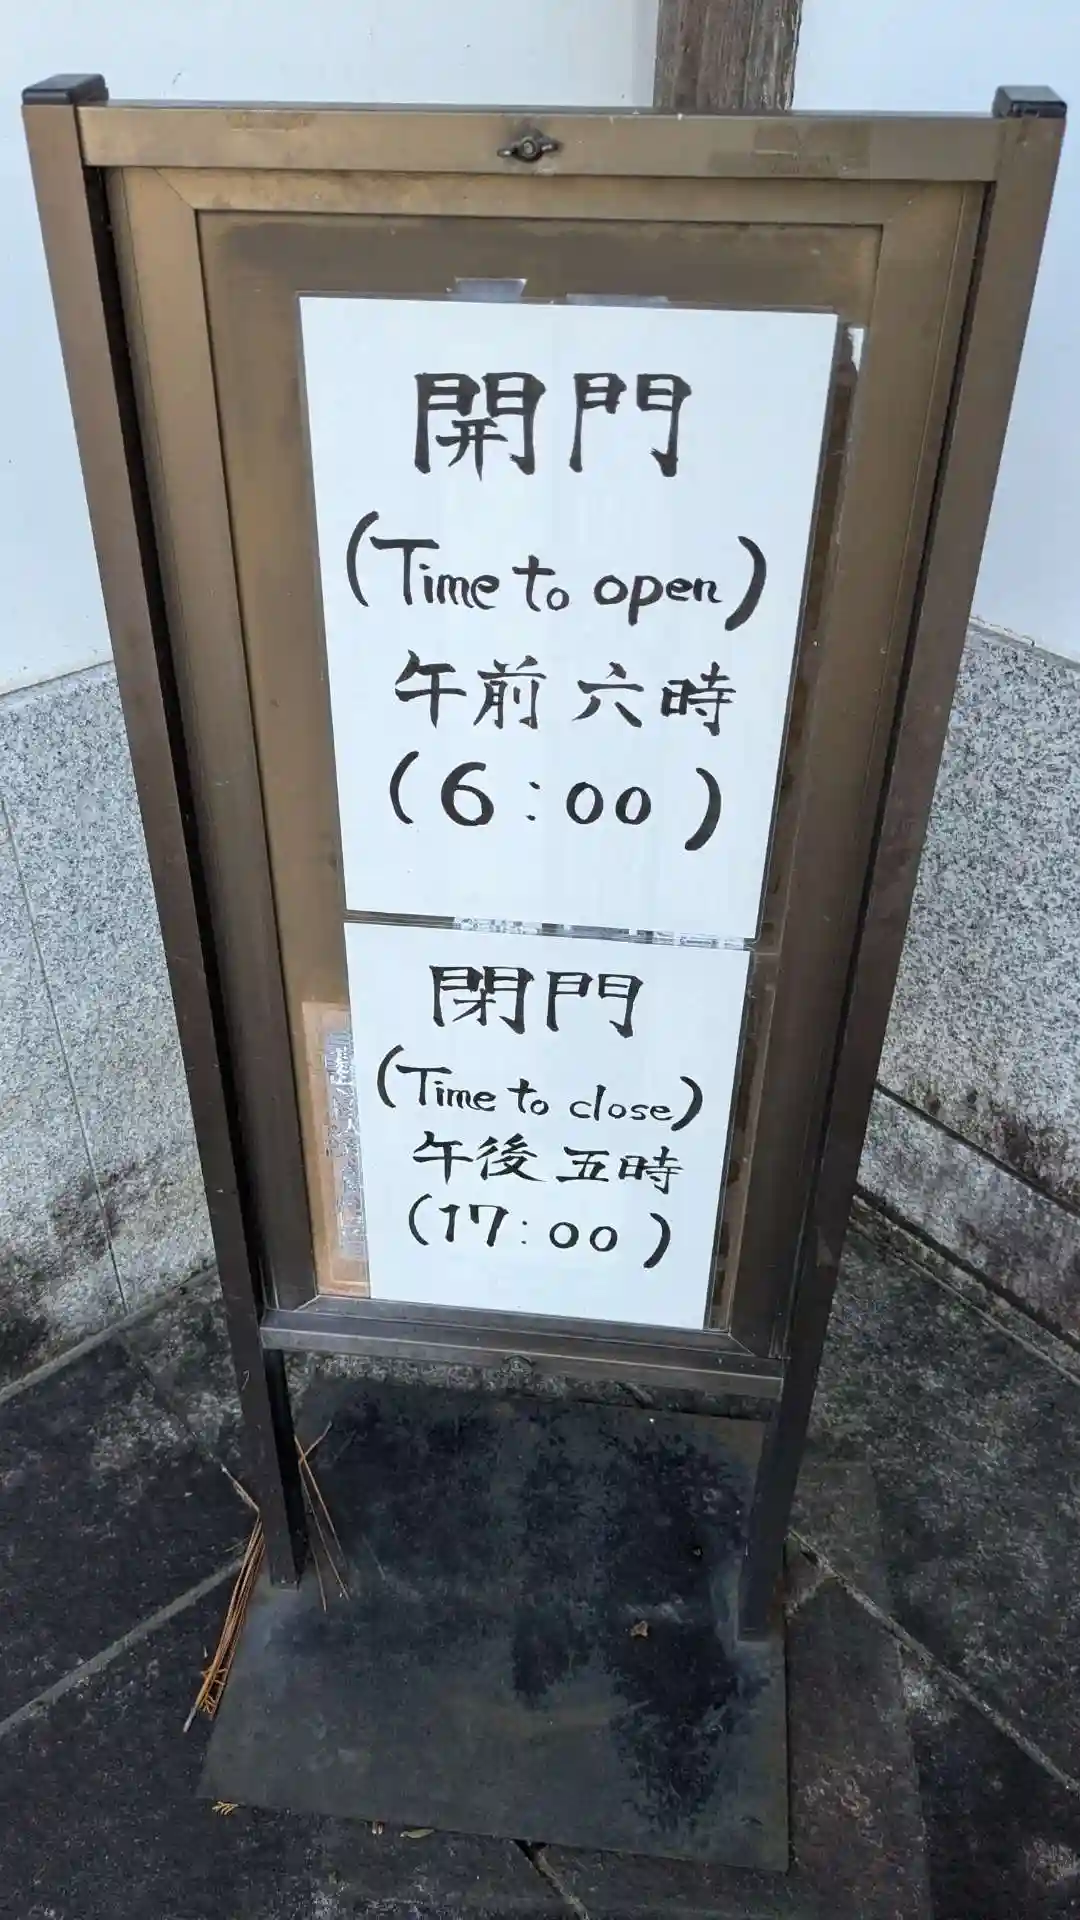 開門
(Time to open)
午前六時
(6:00)
閉門
(Time to close)
午後五時
(17:00)